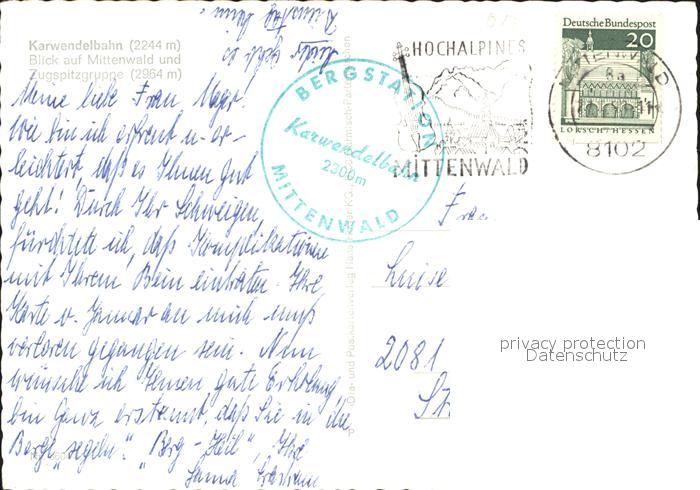 Karwendelbahn (2244 m)
Blick auf Mittenwald und
Zugspitzgruppe (2964 m)
Meine liebe Frau
Wie bin ich erfreut u. er-
leichtert, daß es Ihnen gut
geht! Durch Ihr Schweigen,
fürchtete ich, daß Komplikationen
mit Ihrem Bein eintraten. Ihre
Karte v. Januar an mich muß
verloren gegangen sein. Nun
wünsche ich Ihnen gute Erholung
bin ganz erstaunt, daß Sie in die
Berge „segeln“. „Berg-Heil“, Ihre
BERGSTATION
Karwendelbahn
2300m
MITTENWALD
HOCHALPINES
MITTENWALD
Deutsche Bundespost
20
LORSCH/HESSEN
8102
Frau
Luise
2081
privacy protection
Datenschutz